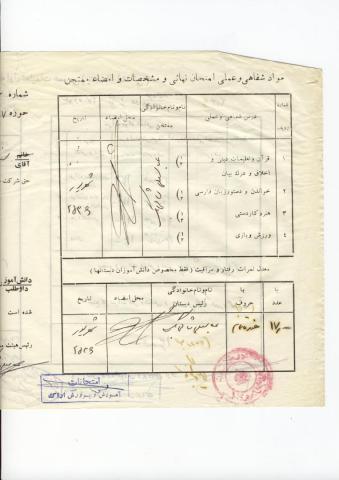 مواد شفاهی و عملی امتحان نهائی و مشخصات و امضاء ممتحن
شماره ردیف
درس شفاهی و عملی
نام و نام خانوادگی ممتحن
محل امضاء
تاریخ
۱ قرآن و تعلیمات دینی و اخلاق و
۲ خواندن و دستور زبان فارسی
۳ هنر و کاردستی
۴ ورزش و بازی
شهریور
۲۵۳۶
معدل نمرات رفتار و مراقبت (فقط مخصوص دانش‌آموزان دبستانها)
با عدد
با حروف
نام و نام خانوادگی رئیس دبستان
محل امضاء
تاریخ
۱۷٫۰۰
هفده تمام
شهریور
۲۵۳۶
شماره
حوزه
خانم
آقای
حق شرکت
دانش‌آموز
داوطلب
شده است
رئیس هیئت
امتحانات
آموزش و پرورش